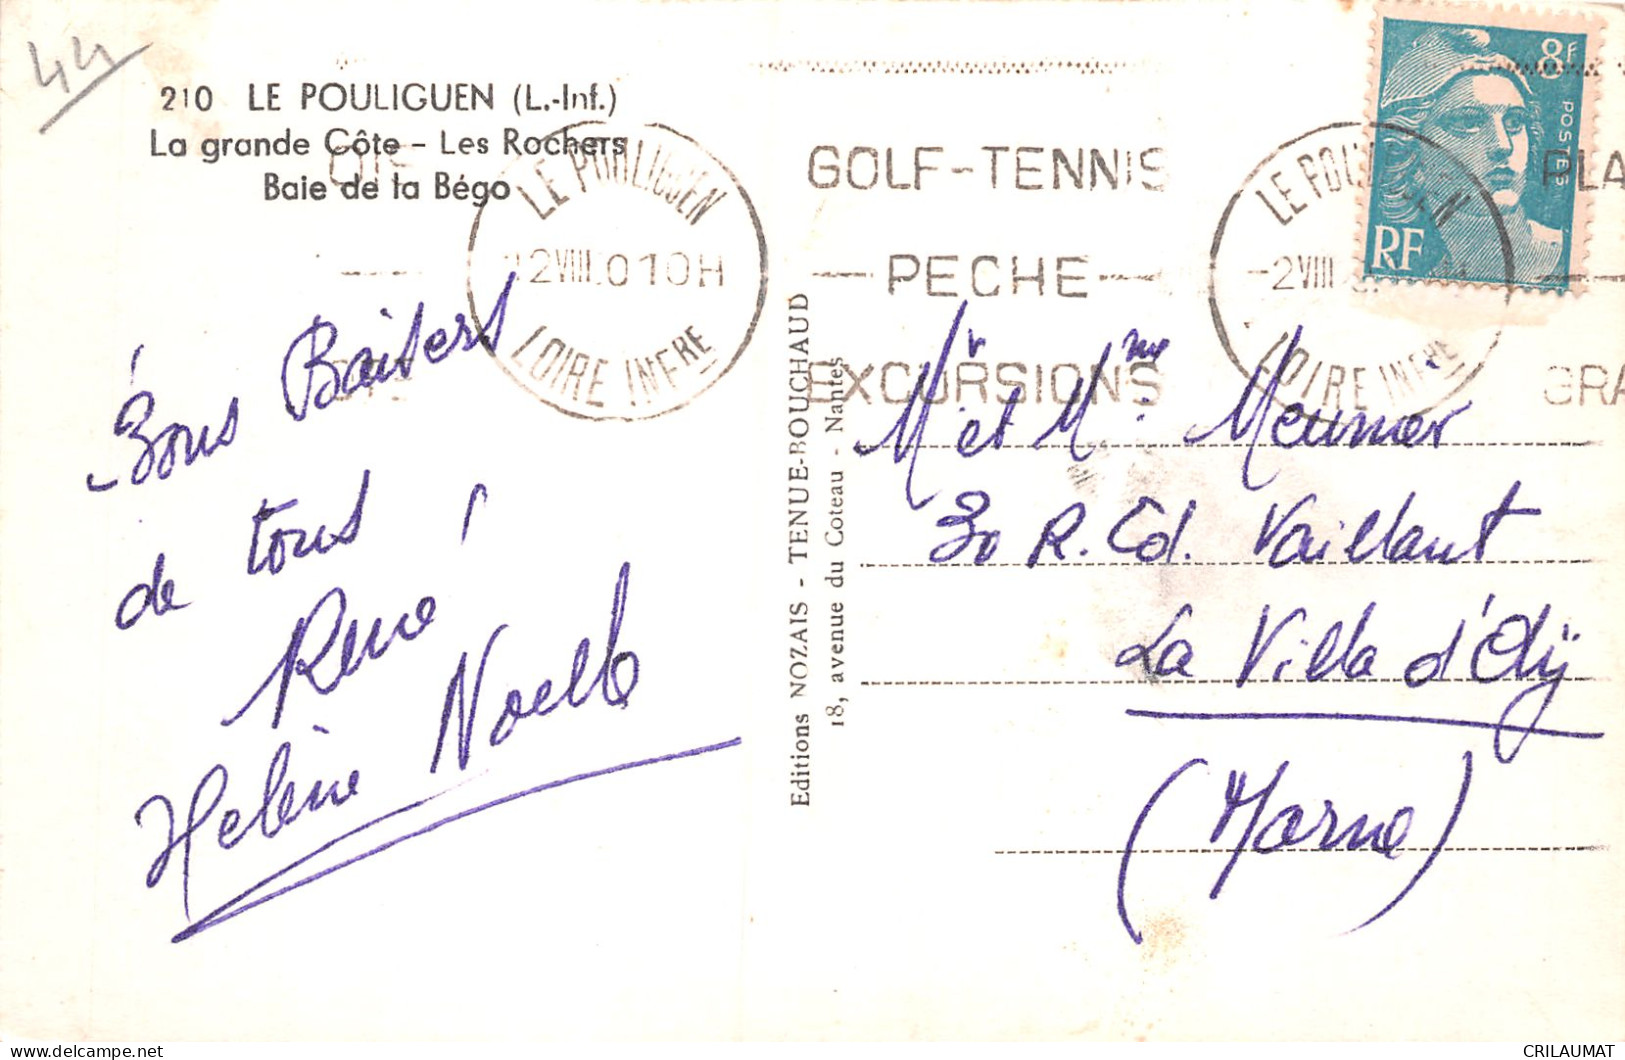 44
210 LE POULIGUEN (L.-Inf.)
La grande Côte - Les Rochers
Baie de la Bégo
LE POULIGUEN
12VIII.010H
LOIRE INFRE
GOLF-TENNIS
PECHE
EXCURSIONS
LE POULIGUEN
-2VIII
LOIRE INFRE
PLA
GRA
8F
POSTES
RF
Bons Baisers
de tous !
René
Helène Noelle
Editions NOZAIS - TENUE-BOUCHAUD
18, avenue du Coteau - Nantes
Mr et Mme Meunier
30 R. Ed. Vaillant
La Villa d'Ay
(Marne)
CRILAUMAT